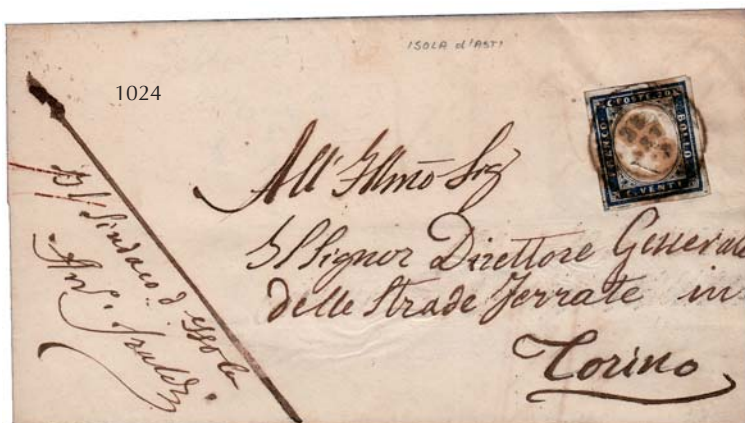 ISOLA d'ASTI
1024
C. POSTE 20
FRANCO
BOLLO
C. VENTI
All' Illmo Sig
Il Signor Direttore Generale
delle Strade Ferrate in
Torino
Il Sindaco d'Isola